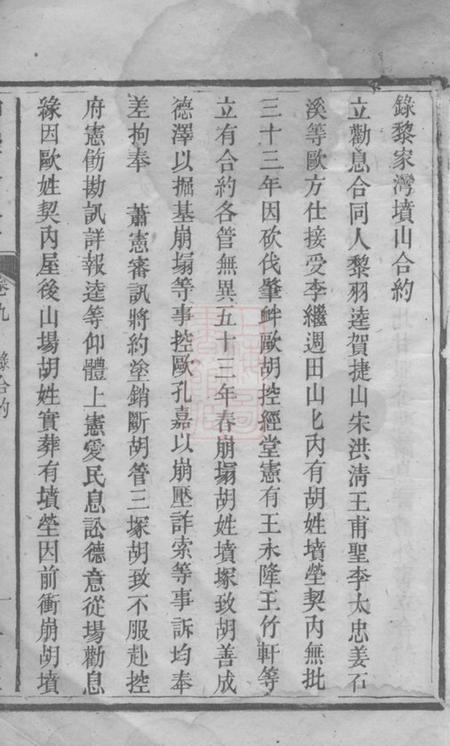 錄黎家灣墳山合約
立勸息合同人黎羽逵賀捷山宋洪淸王甫聖李太忠姜石
溪等歐方仕接受李繼週田山七內有胡姓墳塋契內無批
三十三年因砍伐肇衅歐胡控經堂憲有王永隆王竹軒等
立有合約各管無異五十三年春崩塌胡姓墳塚致胡善成
德澤以掘基崩塌等事控歐孔嘉以崩壓詐索等事訴均奉
差拘奉　蕭憲審訊將約塗銷斷胡管三塚胡致不服赴控
府憲飭勘訊詳報逵等仰體上憲愛民息訟德意從塲勸息
緣因歐姓契內屋後山場胡姓實葬有墳塋因前衝崩胡墳
卷九　錄合約